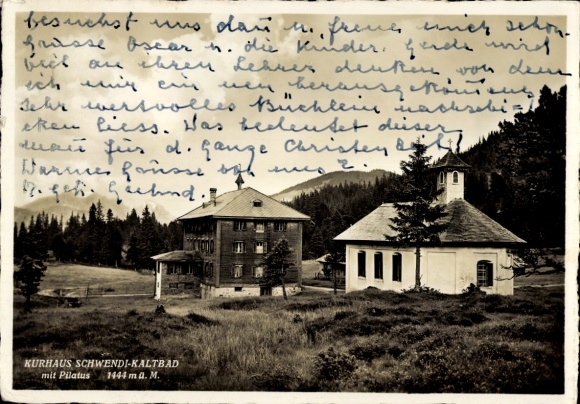 besuchst uns dann u. freue mich schon.
Grüsse Oscar u. die Kinder. Gerda wird
viel an ihren Lehrer denken, von dem
ich mir ein neu herausgekommenes
sehr wertvolles Büchlein nachschi-
cken liess. Was bedeutet dieser
Mann für d. ganze Christenheit
Warme Grüsse von uns 2.
KURHAUS SCHWENDI-KALTBAD
mit Pilatus 1444 m ü. M.